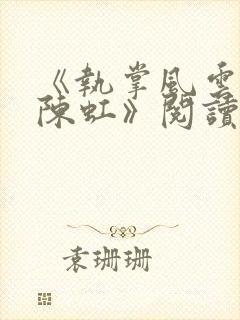 《執掌風雲
陳虹》閱讀
袁珊珊